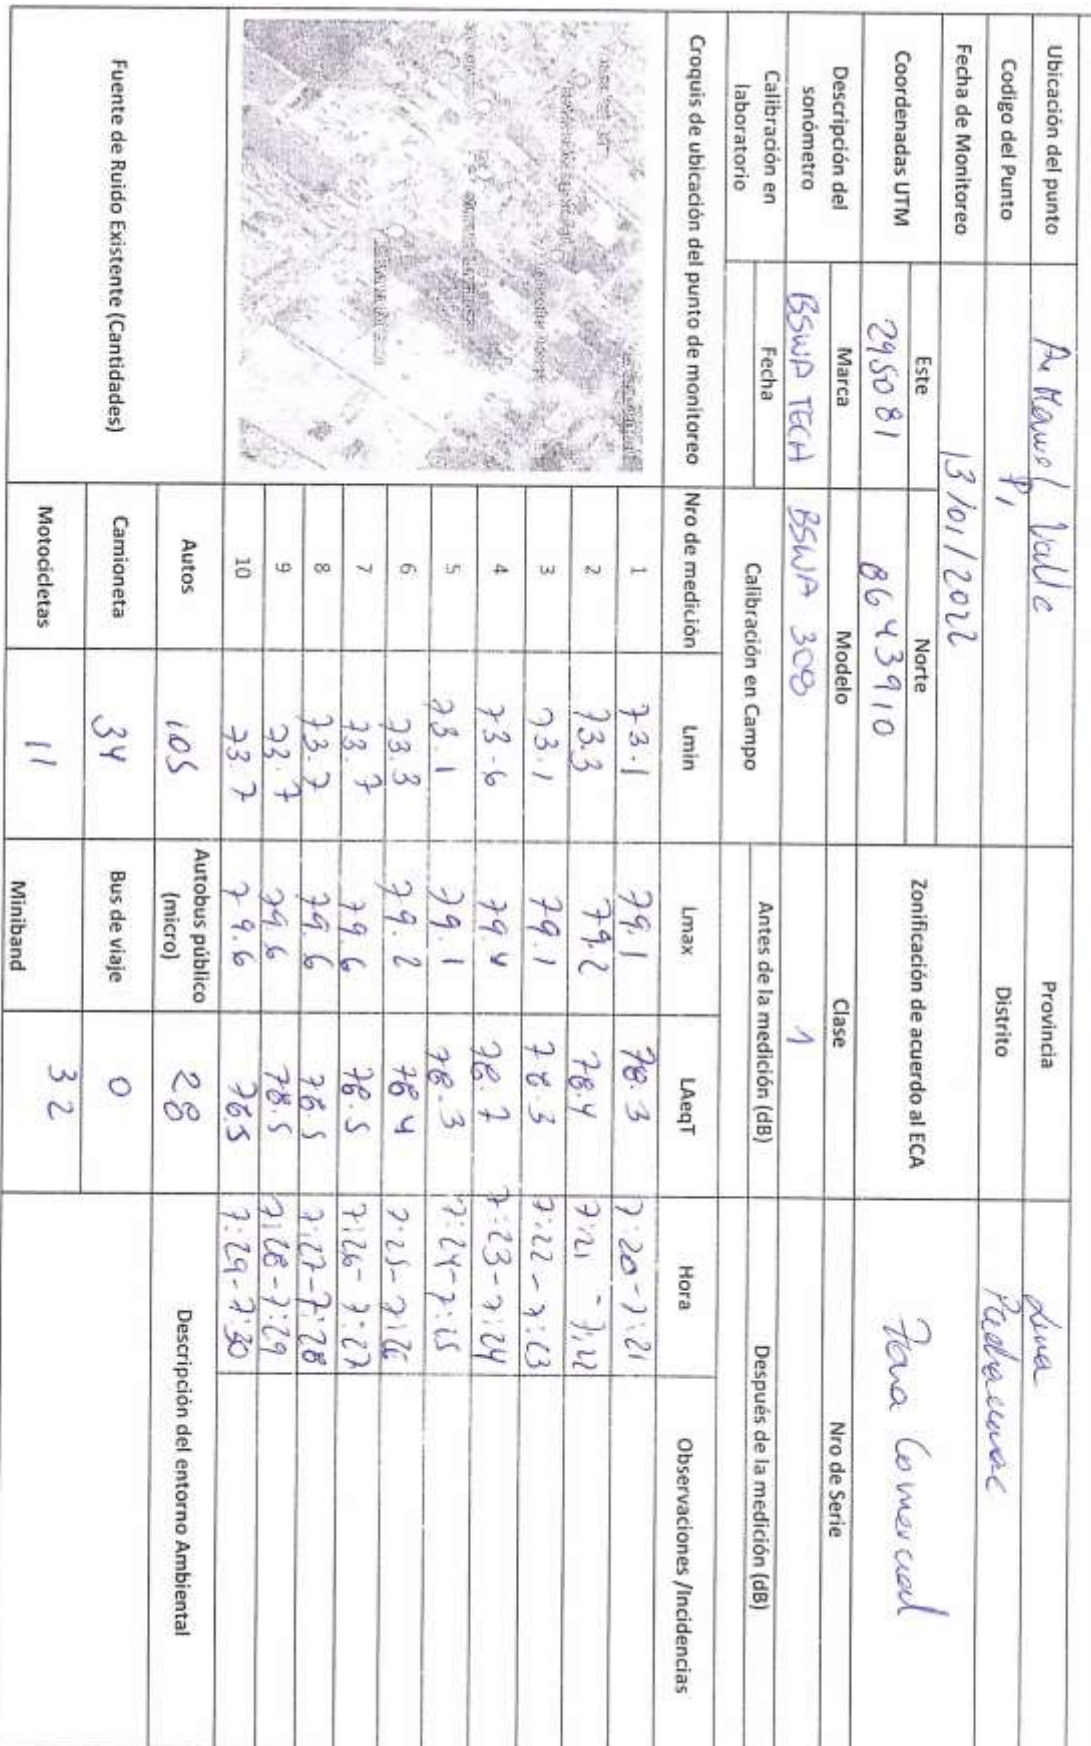 Ubicación del punto Av Manuel Valle Provincia Lima
Codigo del Punto P1 Distrito Pachacamac
Fecha de Monitoreo 13/01/2022
Coordenadas UTM Este Norte Zonificación de acuerdo al ECA Zona Comercial
295081 8643910
Descripción del sonómetro Marca Modelo Clase Nro de Serie
BSWA TECH BSWA 308 1
Calibración en laboratorio Fecha Calibración en Campo Antes de la medición (dB) Después de la medición (dB)
Croquis de ubicación del punto de monitoreo Nro de medición Lmin Lmax LAeqT Hora Observaciones /Incidencias
1 73.1 79.1 78.3 7:20-7:21
2 73.3 79.2 78.4 7:21 - 7:22
3 73.1 79.1 78.3 7:22 - 7:23
4 73.6 79.4 78.7 7:23-7:24
5 73.1 79.1 78.3 7:24-7:25
6 73.3 79.2 78.4 7:25-7:26
7 73.7 79.6 78.5 7:26-7:27
8 73.7 79.6 78.5 7:27-7:28
9 73.7 79.6 78.5 7:28-7:29
10 73.7 79.6 78.5 7:29-7:30
Fuente de Ruido Existente (Cantidades) Autos 105 Autobus público (micro) 28 Descripción del entorno Ambiental
Camioneta 34 Bus de viaje 0
Motocicletas 11 Miniband 32